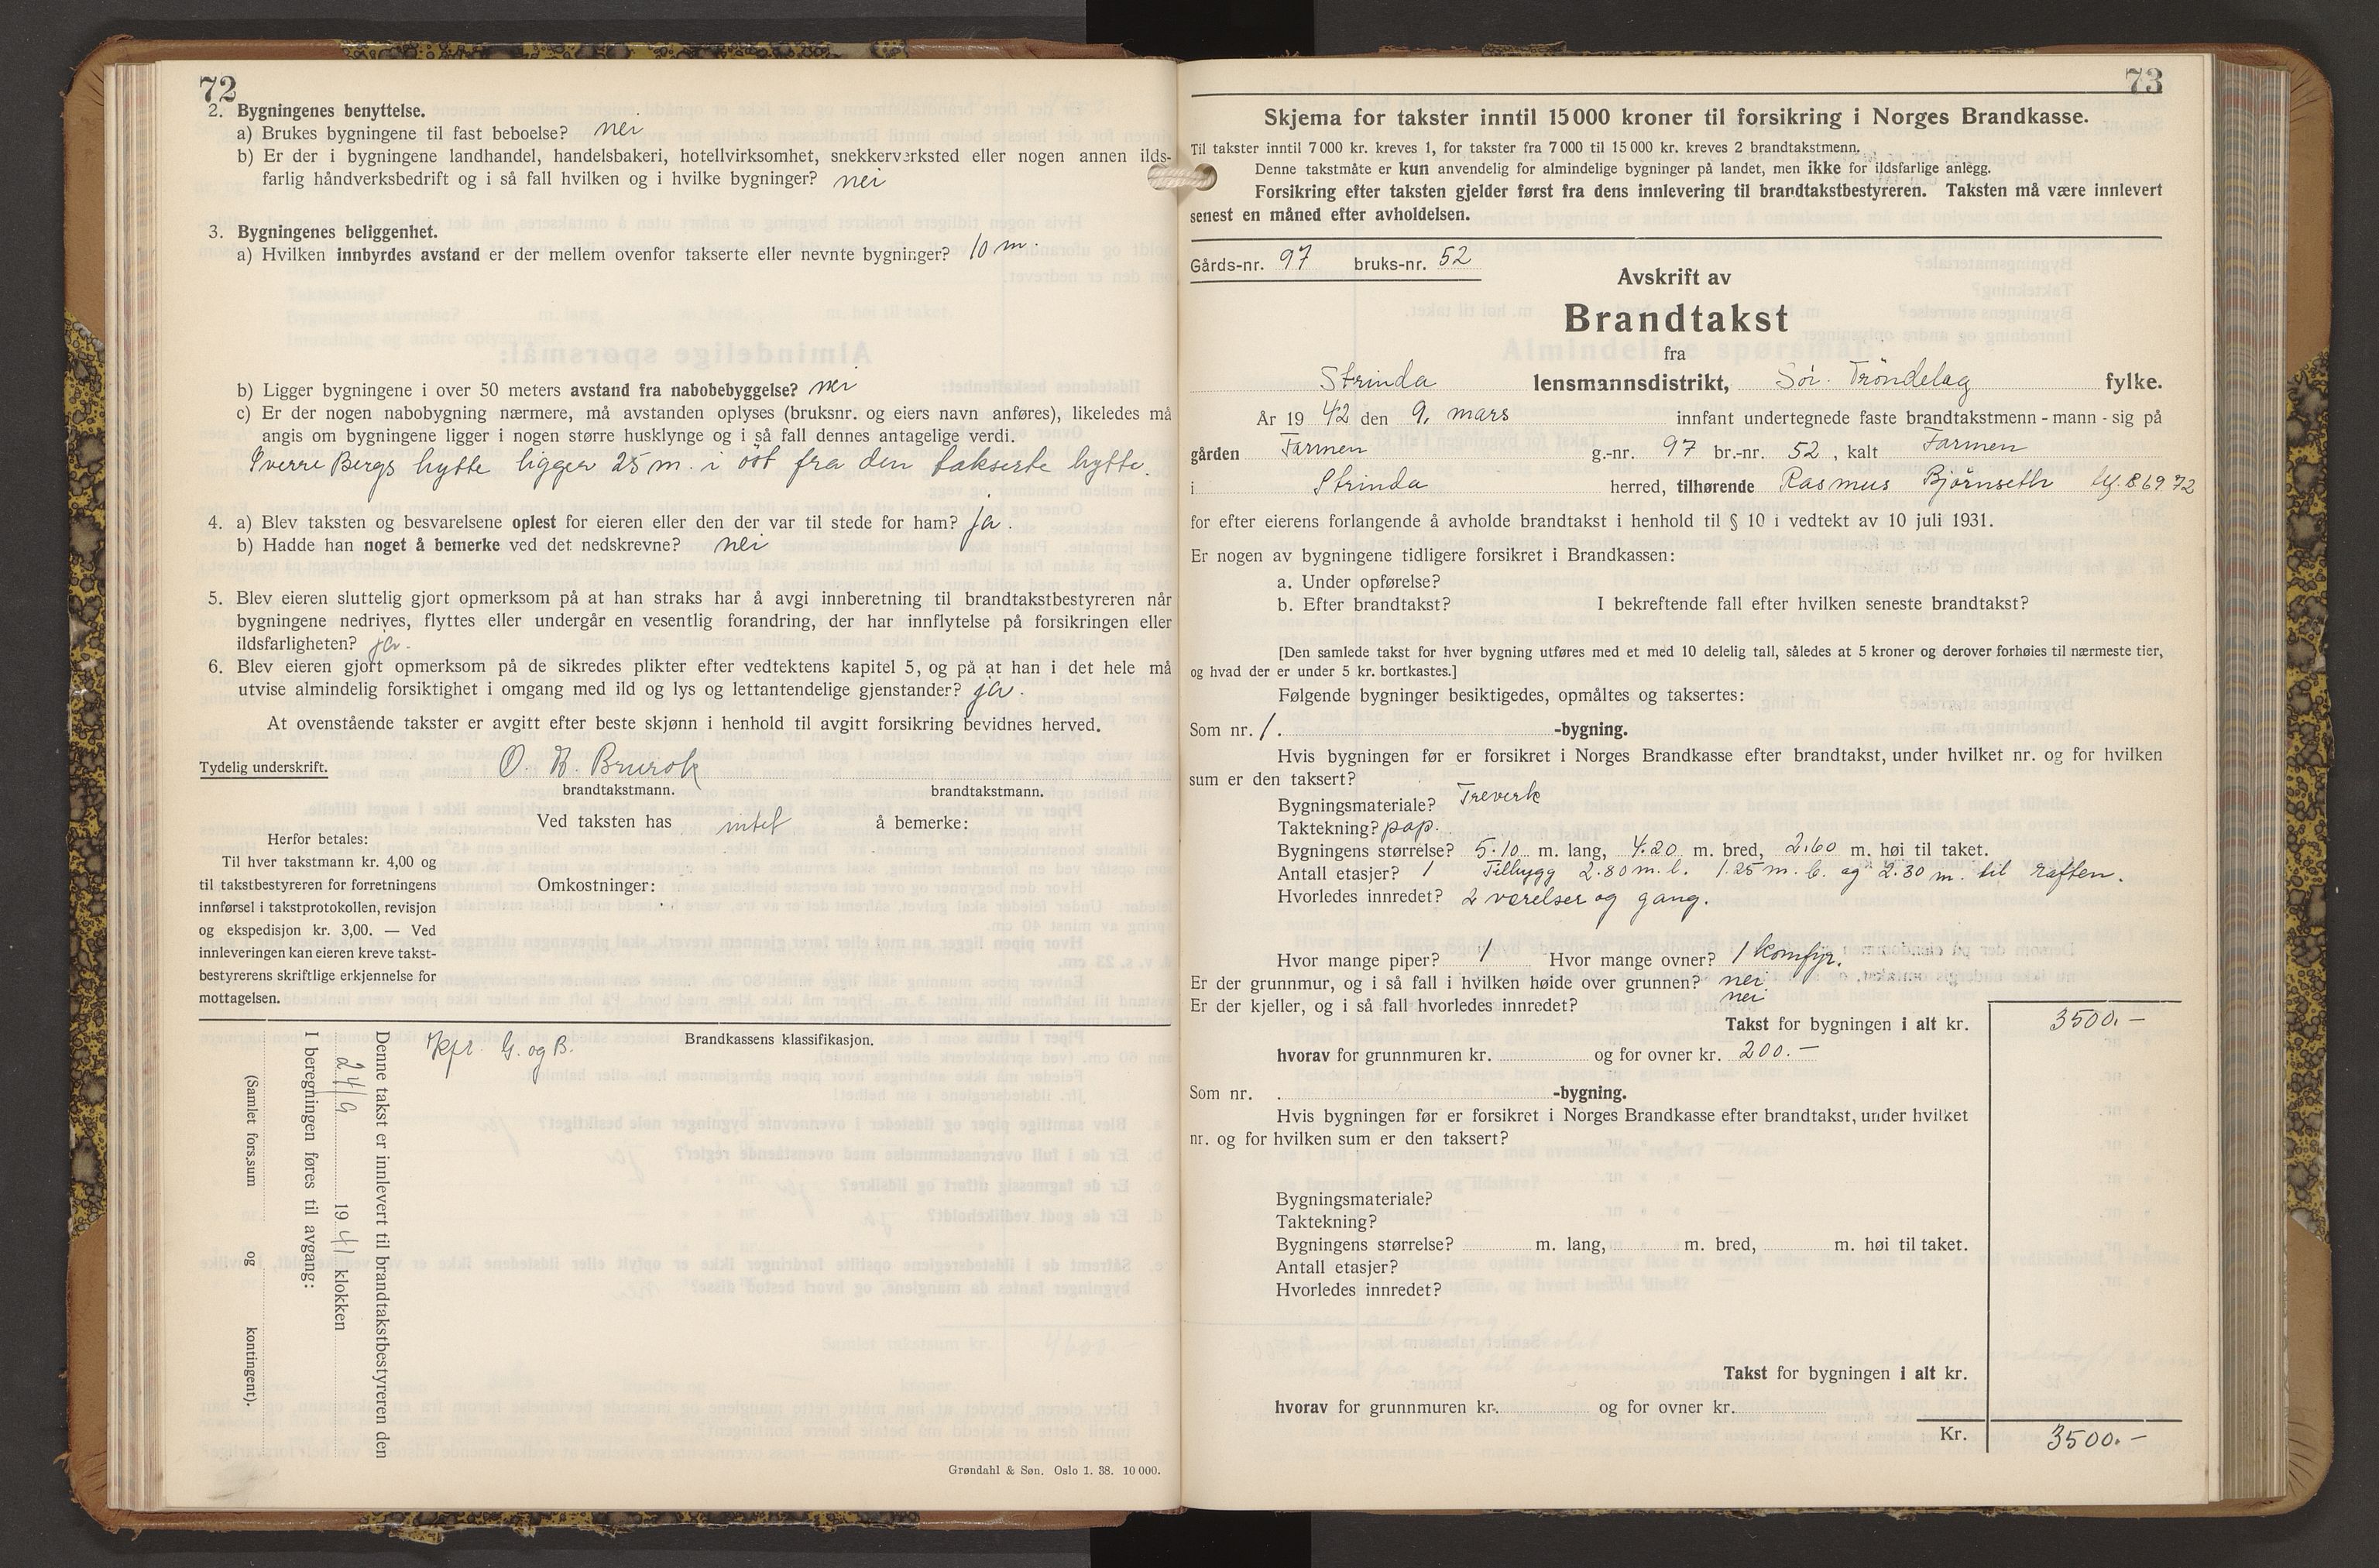 72
2. Bygningenes benyttelse.
a) Brukes bygningene til fast beboelse? nei
b) Er der i bygningene landhandel, handelsbakeri, hotellvirksomhet, snekkerverksted eller nogen annen ilds-
farlig håndverksbedrift og i så fall hvilken og i hvilke bygninger? nei
3. Bygningenes beliggenhet.
a) Hvilken innbyrdes avstand er der mellem ovenfor takserte eller nevnte bygninger? 10 m.
b) Ligger bygningene i over 50 meters avstand fra nabobebyggelse? nei
c) Er der nogen nabobygning nærmere, må avstanden oplyses (bruksnr. og eiers navn anføres), likeledes må
angis om bygningene ligger i nogen større husklynge og i så fall dennes antagelige verdi.
Sverre Bergs hytte ligger 25 m. i öst fra den takserte hytte.
4. a) Blev taksten og besvarelsene oplest for eieren eller den der var til stede for ham? ja.
b) Hadde han noget å bemerke ved det nedskrevne? nei
5. Blev eieren sluttelig gjort opmerksom på at han straks har å avgi innberetning til brandtakstbestyreren når
bygningene nedrives, flyttes eller undergår en vesentlig forandring, der har innflytelse på forsikringen eller
ildsfarligheten? ja.
6. Blev eieren gjort opmerksom på de sikredes plikter efter vedtektens kapitel 5, og på at han i det hele må
utvise almindelig forsiktighet i omgang med ild og lys og lettantendelige gjenstander? ja.
At ovenstående takster er avgitt efter beste skjønn i henhold til avgitt forsikring bevidnes herved.
Tydelig underskrift. O. H. Brurok
brandtakstmann. brandtakstmann.
Ved taksten has intet å bemerke:
Herfor betales:
Til hver takstmann kr. 4,00 og
til takstbestyreren for forretningens
innførsel i takstprotokollen, revisjon
og ekspedisjon kr. 3,00. — Ved
innleveringen kan eieren kreve takst-
bestyrerens skriftlige erkjennelse for
mottagelsen.
Omkostninger:
Denne takst er innlevert til brandtakstbestyreren den
24/9 1941 klokken
I beregningen føres til avgang:
(Samlet fors.sum og kontingent).
Kfr. G. og B.
Brandkassens klassifikasjon.
Grøndahl & Søn. Oslo 1. 38. 10 000.
73
Skjema for takster inntil 15 000 kroner til forsikring i Norges Brandkasse.
Til takster inntil 7 000 kr. kreves 1, for takster fra 7 000 til 15 000 kr. kreves 2 brandtakstmenn.
Denne takstmåte er kun anvendelig for almindelige bygninger på landet, men ikke for ildsfarlige anlegg.
Forsikring efter taksten gjelder først fra dens innlevering til brandtakstbestyreren. Taksten må være innlevert
senest en måned efter avholdelsen.
Gårds-nr. 97 bruks-nr. 52
Avskrift av
Brandtakst
fra
Strinda lensmannsdistrikt, Sör-Tröndelag fylke.
År 19 42 den 9. mars innfant undertegnede faste brandtakstmenn - mann - sig på
gården Tarmen g.-nr. 97 br.-nr. 52, kalt Tarmen
i Strinda herred, tilhørende Rasmus Björnseth tlf. 869 72
for efter eierens forlangende å avholde brandtakst i henhold til § 10 i vedtekt av 10 juli 1931.
Er nogen av bygningene tidligere forsikret i Brandkassen:
a. Under opførelse?
b. Efter brandtakst? I bekreftende fall efter hvilken seneste brandtakst?
[Den samlede takst for hver bygning utføres med et med 10 delelig tall, således at 5 kroner og derover forhøies til nærmeste tier,
og hvad der er under 5 kr. bortkastes.]
Følgende bygninger besiktigedes, opmåltes og taksertes:
Som nr. 1. -bygning.
Hvis bygningen før er forsikret i Norges Brandkasse efter brandtakst, under hvilket nr. og for hvilken
sum er den taksert?
Bygningsmateriale? Treverk
Taktekning? pap.
Bygningens størrelse? 5.10 m. lang, 4.20 m. bred, 2.60 m. høi til taket.
Antall etasjer? 1 Tilbygg 2.80 m. l. 1.25 m. b. og 2.30 m. til raften.
Hvorledes innredet? 2 værelser og gang.
Hvor mange piper? 1 Hvor mange ovner? 1 komfyr.
Er der grunnmur, og i så fall i hvilken høide over grunnen? nei
Er der kjeller, og i så fall hvorledes innredet? nei
Takst for bygningen i alt kr. 3500.-
hvorav for grunnmuren kr. og for ovner kr. 200.-
Som nr. . -bygning.
Hvis bygningen før er forsikret i Norges Brandkasse efter brandtakst, under hvilket
nr. og for hvilken sum er den taksert?
Bygningsmateriale?
Taktekning?
Bygningens størrelse? m. lang, m. bred, m. høi til taket.
Antall etasjer?
Hvorledes innredet?
Takst for bygningen i alt kr.
hvorav for grunnmuren kr. og for ovner kr.
Kr. 3500.-